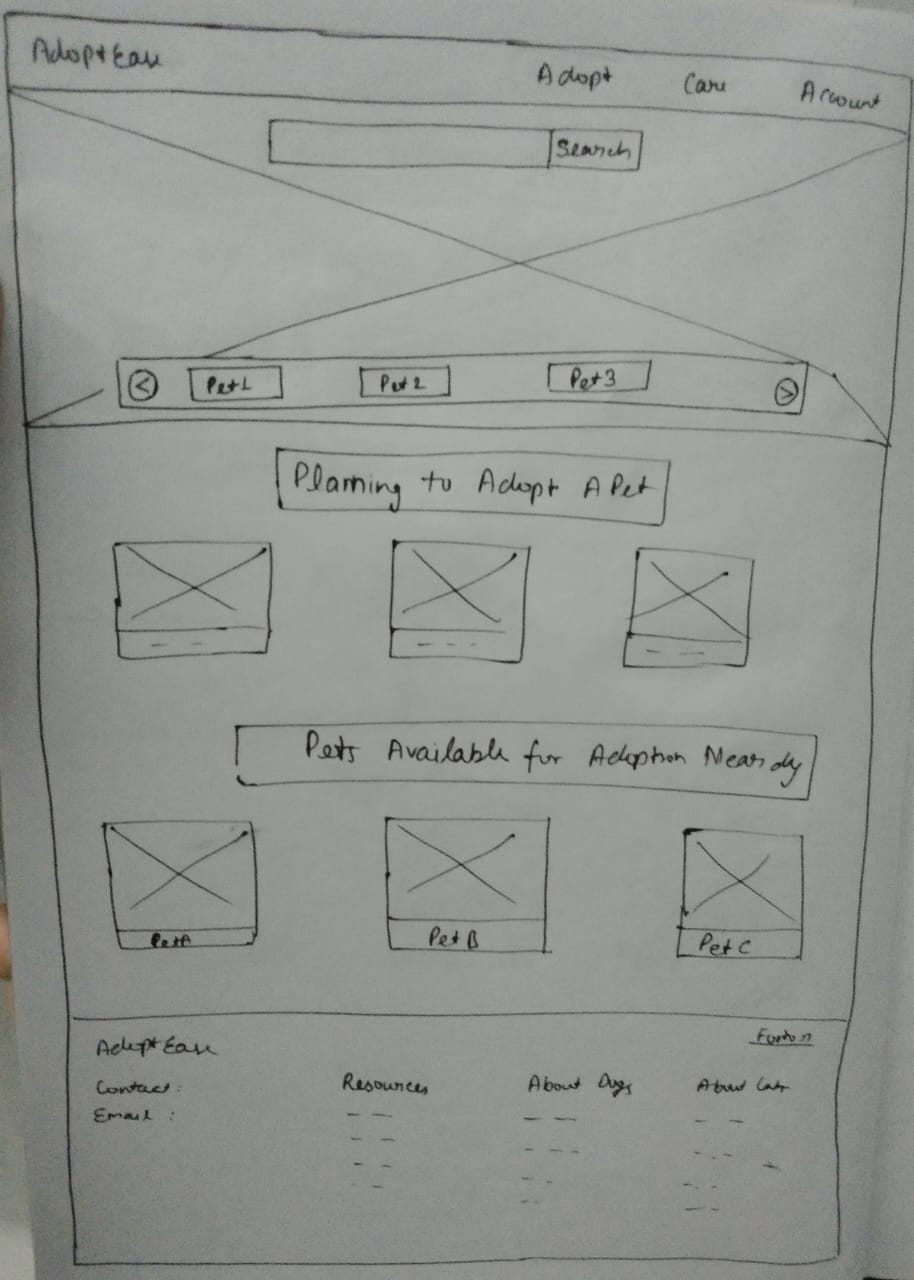 AdoptEase
Adopt Care Account
Search
< Pet 1 Pet 2 Pet 3 >
Planning to Adopt A Pet
Pets Available for Adoption Nearby
Pet A Pet B Pet C
AdoptEase
Contact: Resources About Dogs About Cats
Email :